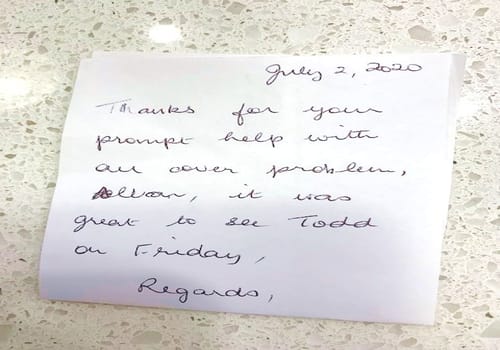 July 2, 2020
Thanks for your
prompt help with
our cover problem,
it was
great to see Todd
on Friday,
Regards,